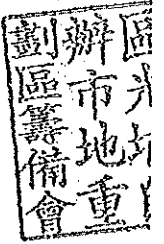 區光
辦市地重
劃區籌備會